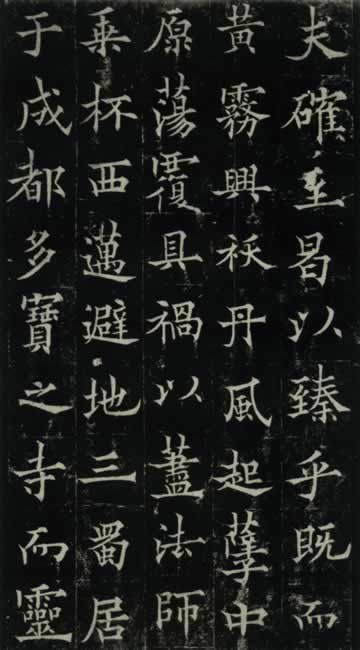 夫確至曷以臻乎既而
黃霧興祅丹風起孽中
原蕩覆具禍以蓋法師
乘杯西邁避地三蜀居
于成都多寶之寺而靈